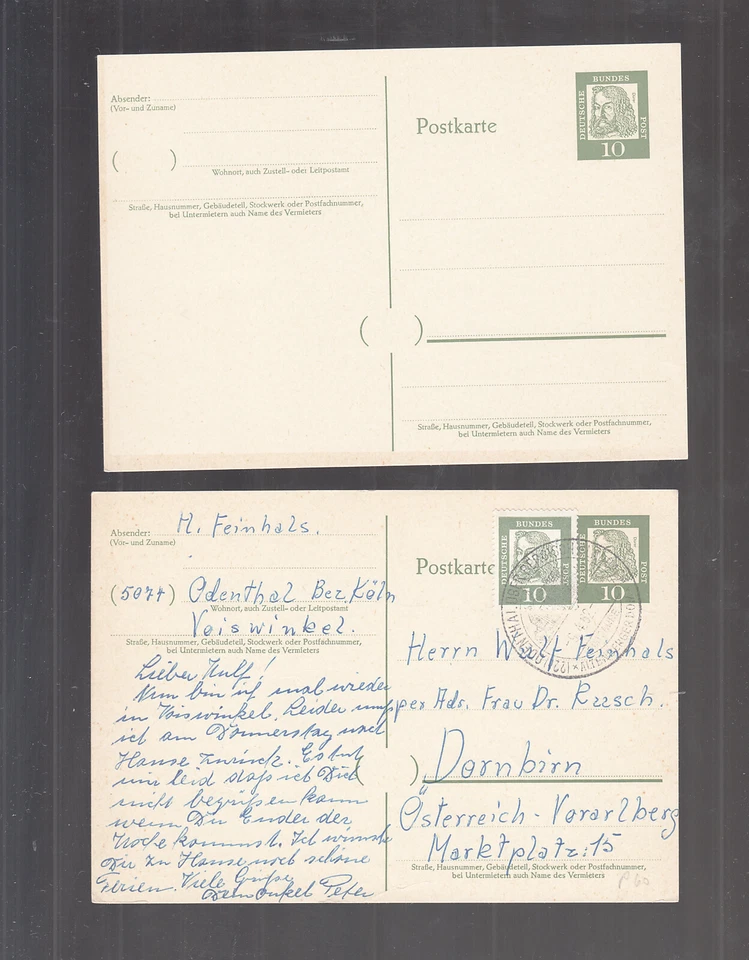 Absender:
(Vor- und Zuname)
( )
Wohnort, auch Zustell- oder Leitpostamt
Straße, Hausnummer, Gebäudeteil, Stockwerk oder Postfachnummer,
bei Untermietern auch Name des Vermieters
Postkarte
DEUTSCHE
BUNDES
POST
Dürer
10
( )
Straße, Hausnummer, Gebäudeteil, Stockwerk oder Postfachnummer,
bei Untermietern auch Name des Vermieters
Absender: H. Feinhals.
(Vor- und Zuname)
(5071) Odenthal Bez. Köln
Wohnort, auch Zustell- oder Leitpostamt
Voiswinkel.
Straße, Hausnummer, Gebäudeteil, Stockwerk oder Postfachnummer,
bei Untermietern auch Name des Vermieters
Lieber Wulf!
Nun bin ich mal wieder
in Voiswinkel. Leider muß
ich am Donnerstag nach
Hause zurück. Es tut
mir leid daß ich Dich
nicht begrüßen kann
wenn Du Ender der
Woche kommst. Ich wünsche
Dir zu Hause noch schöne
Ferien. Viele Grüße
Dein Onkel Peter
Postkarte
DEUTSCHE
BUNDES
POST
10
DEUTSCHE
BUNDES
POST
Dürer
10
Herrn Wulf Feinhals
per Adr. Frau Dr. Rusch.
( ) Dornbirn
Österreich - Vorarlberg
Marktplatz: 15
Straße, Hausnummer, Gebäudeteil, Stockwerk oder Postfachnummer,
bei Untermietern auch Name des Vermieters
P 60